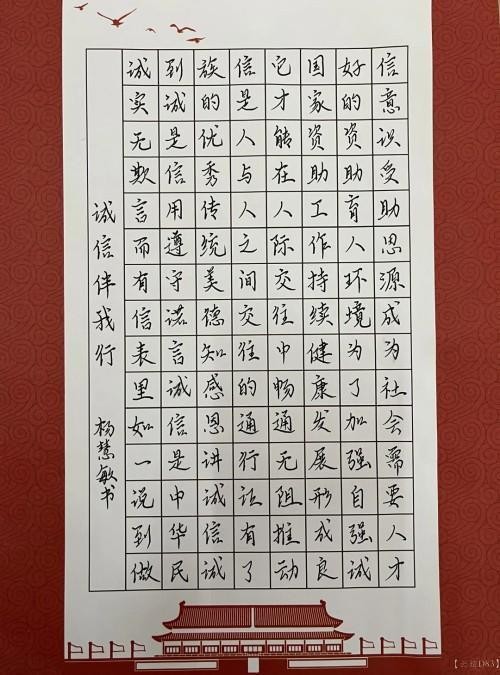 诚信伴我行
杨慧敏书
诚实无欺言而有信表里如一说到做
到诚是信用遵守诺言诚信是中华民
族的优秀传统美德知感恩讲诚信诚
信是人与人之间交往的通行证有了
它才能在人际交往中畅通无阻推动
国家资助工作持续健康发展形成良
好的资助育人环境为了加强自强诚
信意识受助思源成为社会需要人才
D83